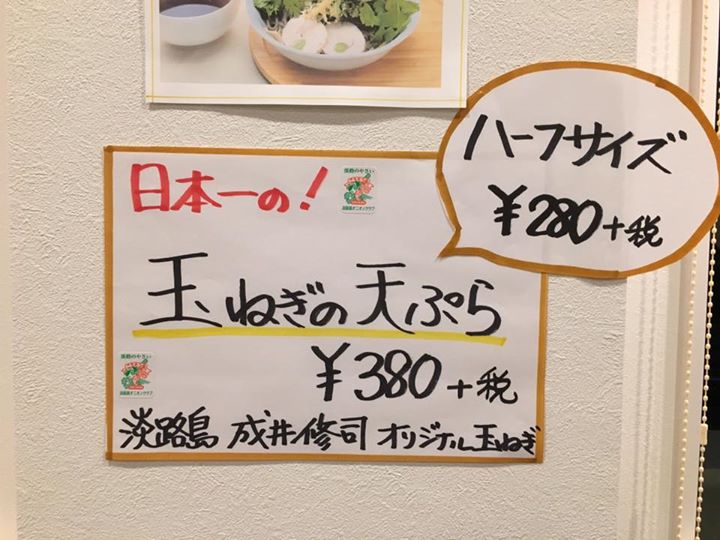 ハーフサイズ
¥280+税
日本一の!
淡路のやさい
淡路島オニオンクラブ
玉ねぎの天ぷら
¥380+税
淡路のやさい
淡路島オニオンクラブ
淡路島 成井修司 オリジナル玉ねぎ